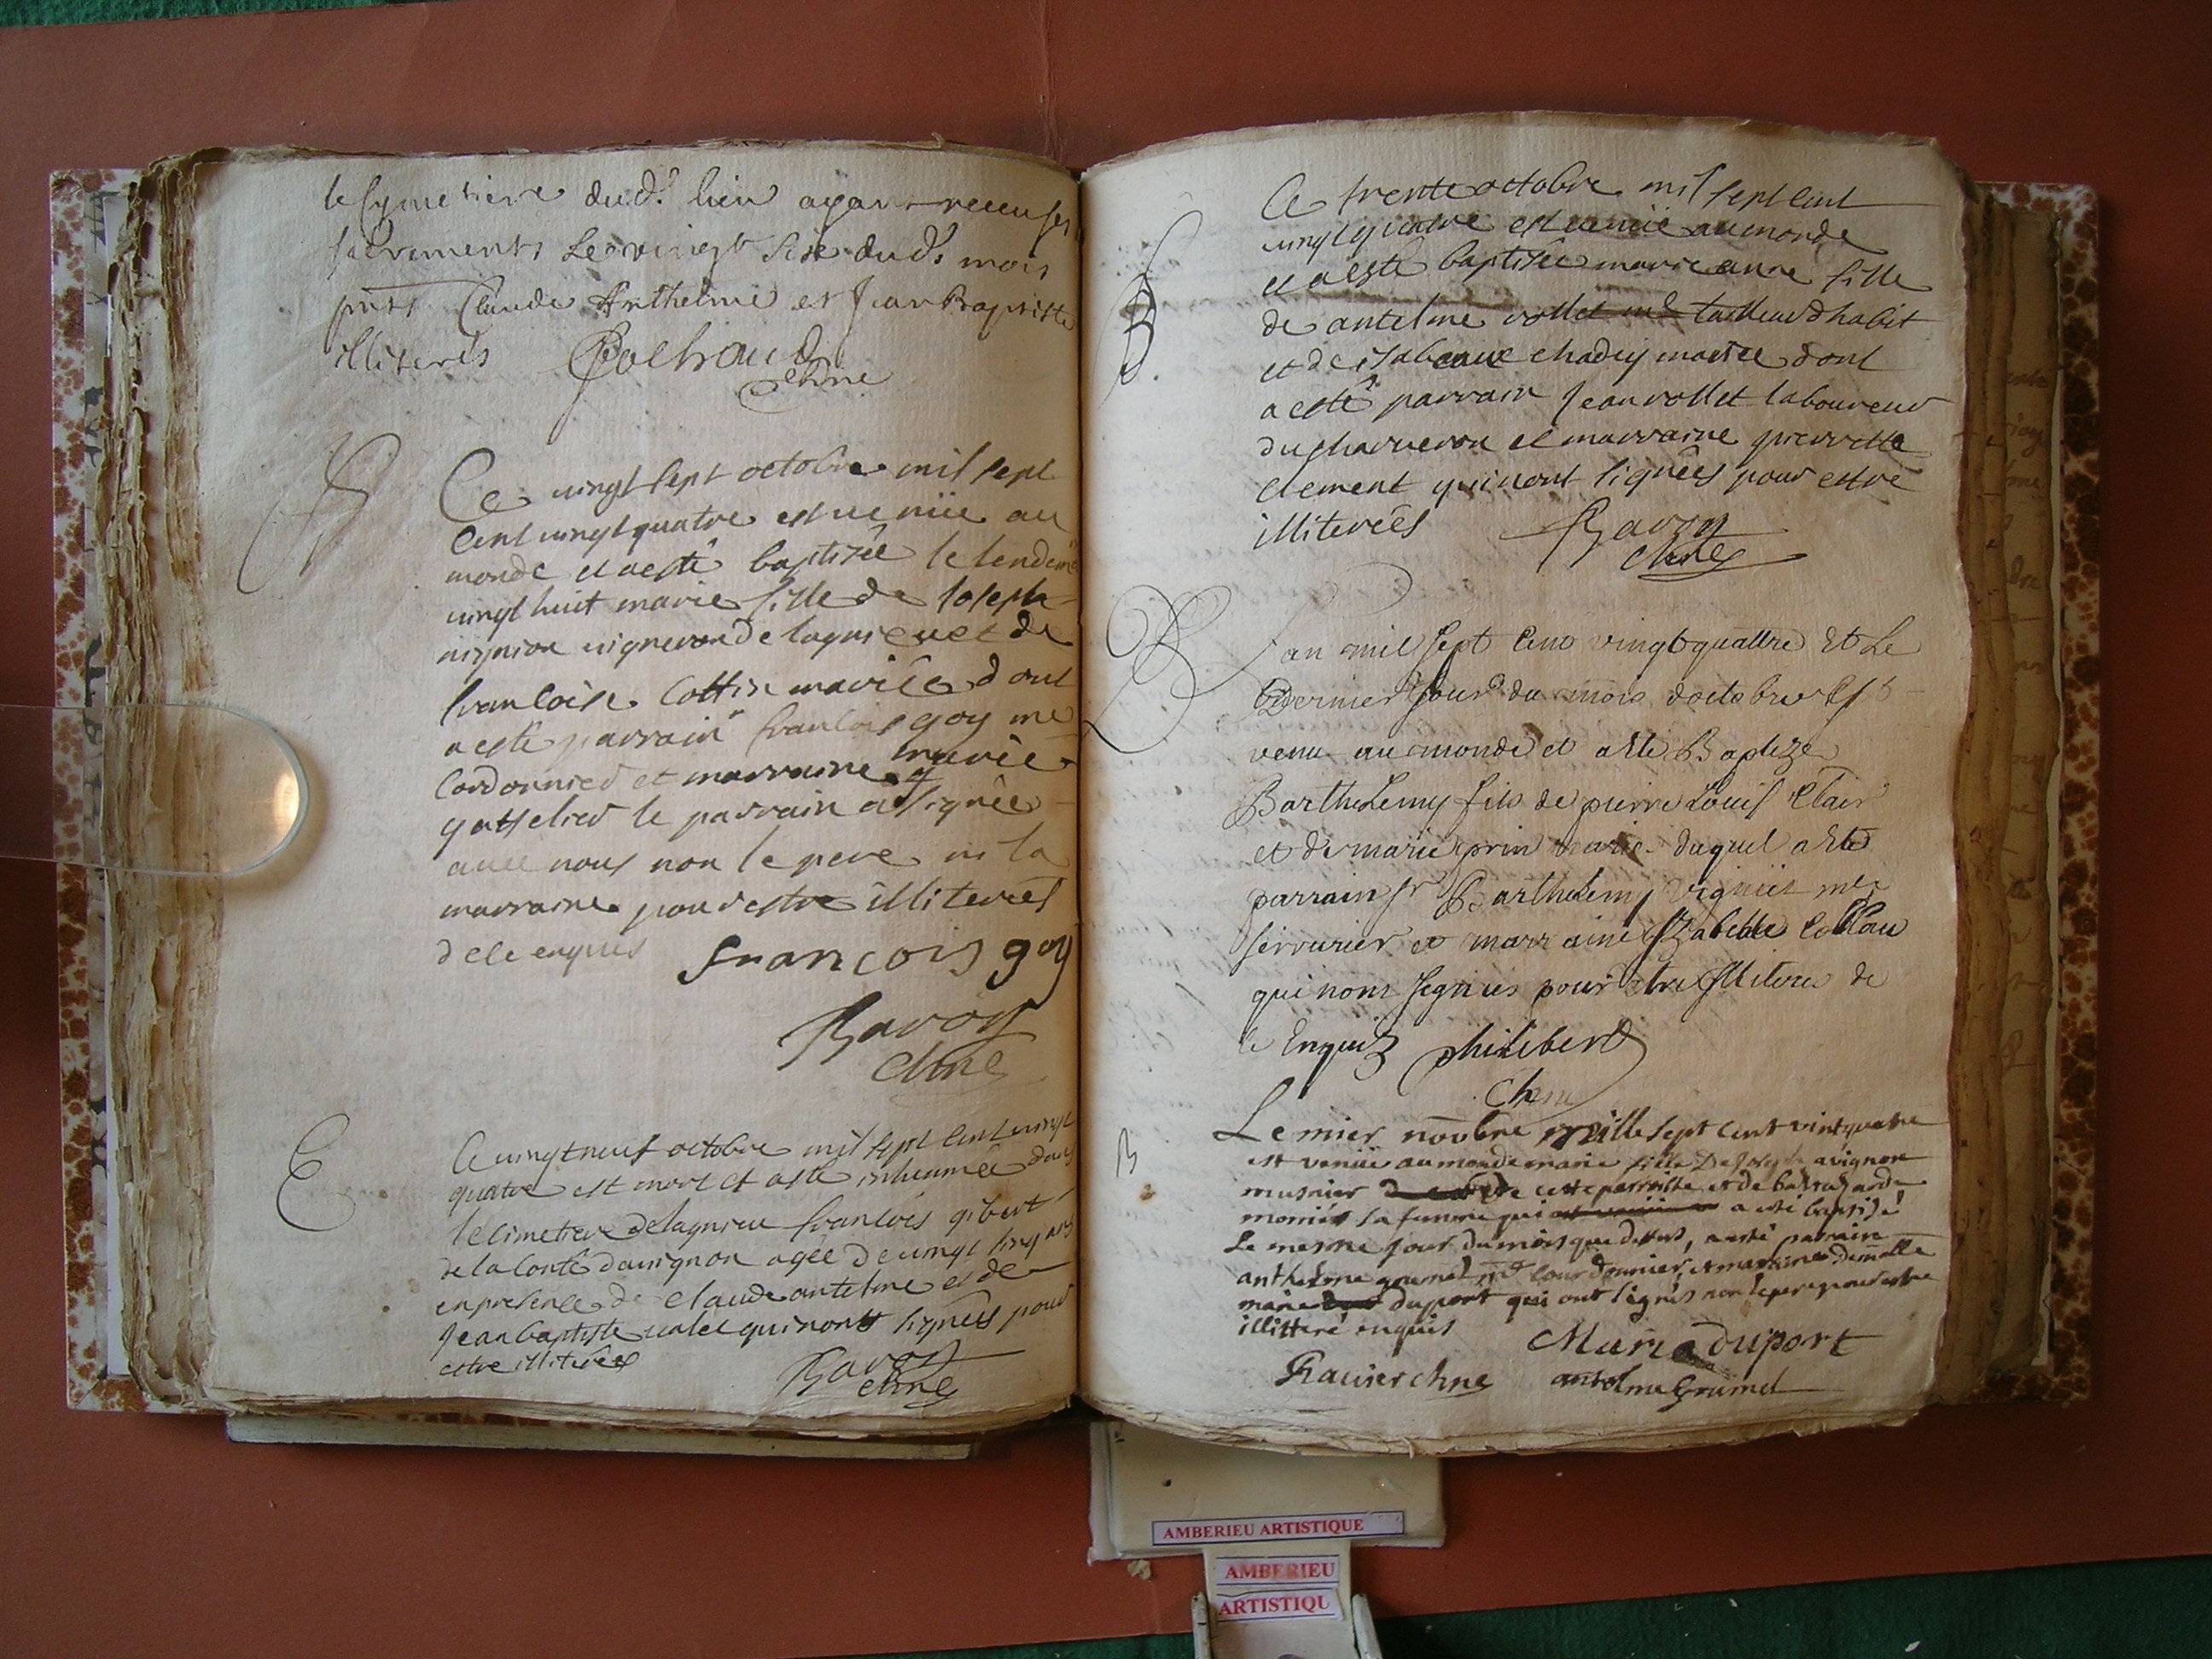 le Cymetiere dud.t lieu ayant receu ses
sacrements Le vingt six dud.t mois
pnts Claude Anthelme et Jean Baptiste
illiterés Pochoud
chne
B
Ce vingt sept octobre mil sept
cent vingt quatre est venüe au
monde et a esté baptisée le lendem
vingt huit marie fille de Joseph
vigneron de lagnieu et de
francoise Cottin mariée dont
a esté parrain francois goy me
Cordonnier et marraine marie
le parrain a signée
avec nous non le pere ni la
marraine pour estre illiterées
de ce enquis francois goy
Ravon
chne
E
Ce vingt neuf octobre mil sept cent vingt
quatre est mort et a esté inhumée dans
le cimetiere de lagnieu francois gibert
de la Conté davignon agée de vingt cinq ans
en presence de claude antelme et de
Jean baptiste qui nont signées pour
estre illiterées Ravon
chne
B.
Ce trente octobre mil sept cent
vingt quatre est venüe au monde
et a esté baptisée marie anne fille
de antelme vollet md tailleur dhabit
et de isabeaux chaduy mariée dont
a esté parrain Jean vollet laboureur
du charveron et marraine pierrette
clement qui nont signées pour estre
illiterées Ravon
chne
B
Lan mil sept cent vingt quattre Et Le
dernier Jour du mois doctobre Est
venu au monde et a Esté Baptizé
BartheLemy fils de pierre Louis Clair
et de marie prin mariée duquel a Esté
parrain sr BartheLemy vigniet me
serrurier et marraine Izabelle
qui nont segniés pour Etre Illiteres de
ce Enquis philibert
chne
B
Le mier novbre mille sept cent vint quatre
est veniie au monde marie fille De Joseph avignon
musnier de cette parroisse et de
monier sa femme qui a esté baptisé
Le mesme jour du mois que dessus, a esté parrain
anthelme grumel md cour donnier, et marraine demelle
marie duport qui ont signés non le pere pour estre
illitteré enquis Marie duport
Ravier chne antelme Grumel
AMBERIEU ARTISTIQUE
AMBERIEU
ARTISTIQU